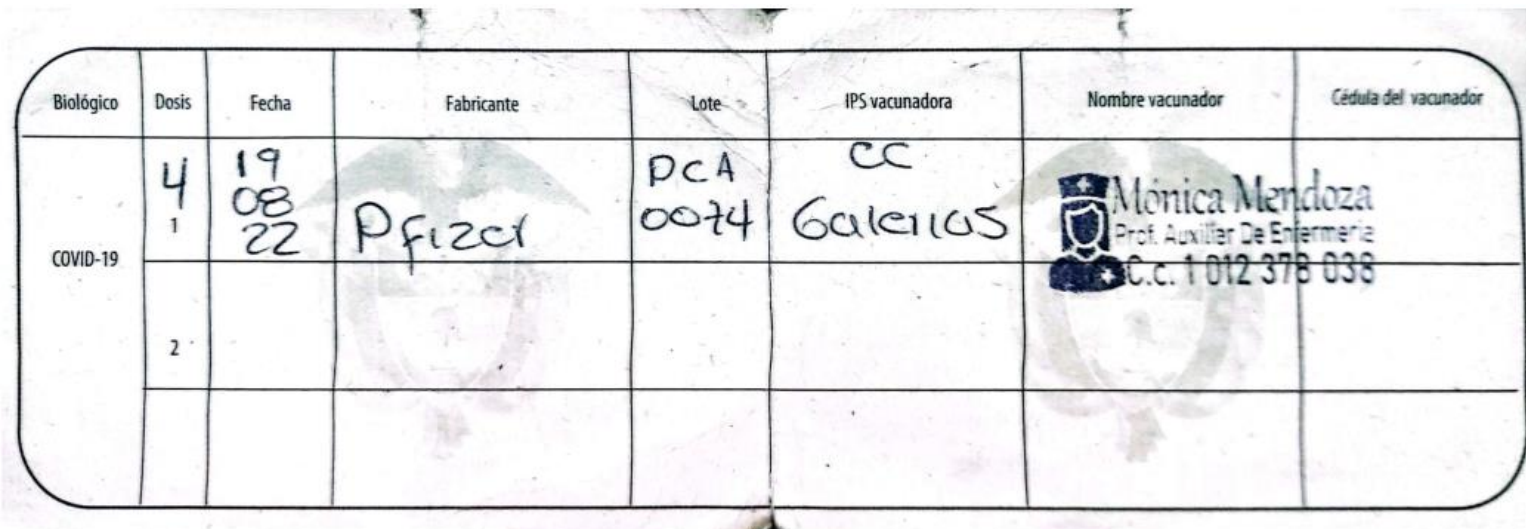 Biológico Dosis Fecha Fabricante Lote IPS vacunadora Nombre vacunador Cédula del vacunador
COVID-19
4
1
19
08
22
Pfizer
PCA
0074
CC
Galerias
Mónica Mendoza
Prof. Auxiliar De Enfermeria
C.c. 1 012 378 038
2